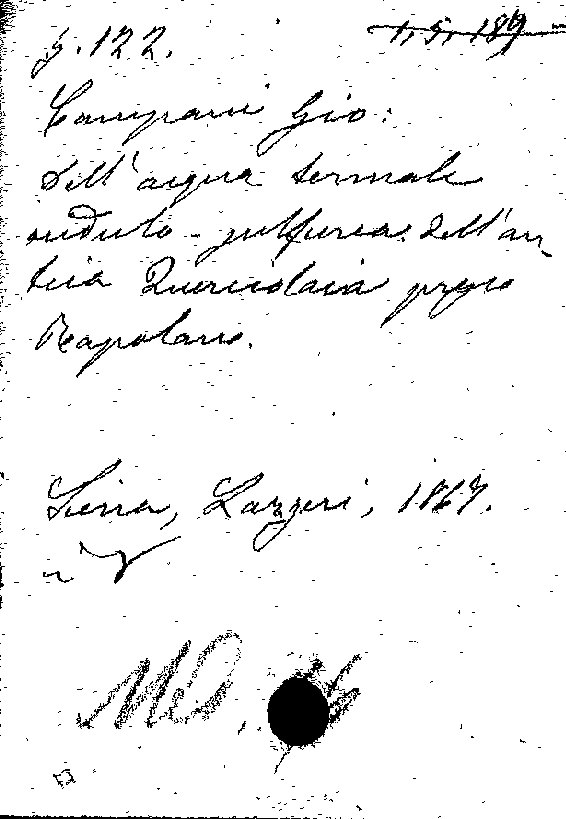 g. 122. 1, 5, 189
Campani Gio:
Dell'acqua termale
acidulo-sulfurea dell'an-
tica Querciolaia presso
Rapolano.
Siena, Lazzeri, 1867.
Med.